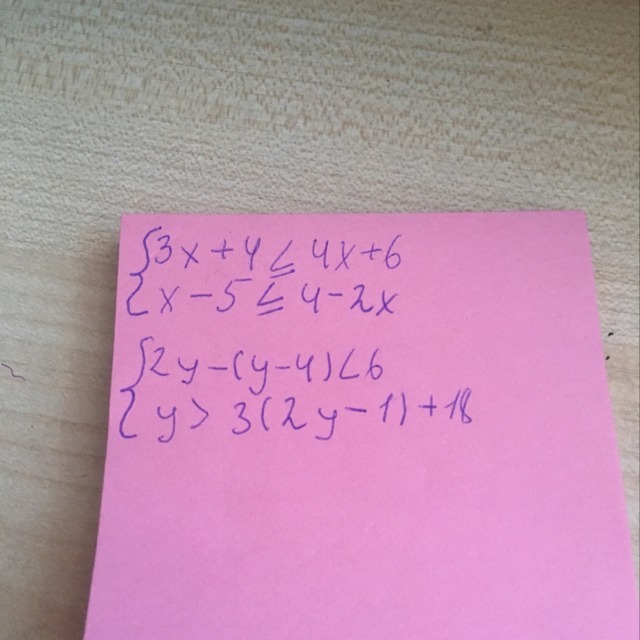 {3x+4≤4x+6
{x-5≤4-2x
{2y-(y-4)<6
{y>3(2y-1)+18